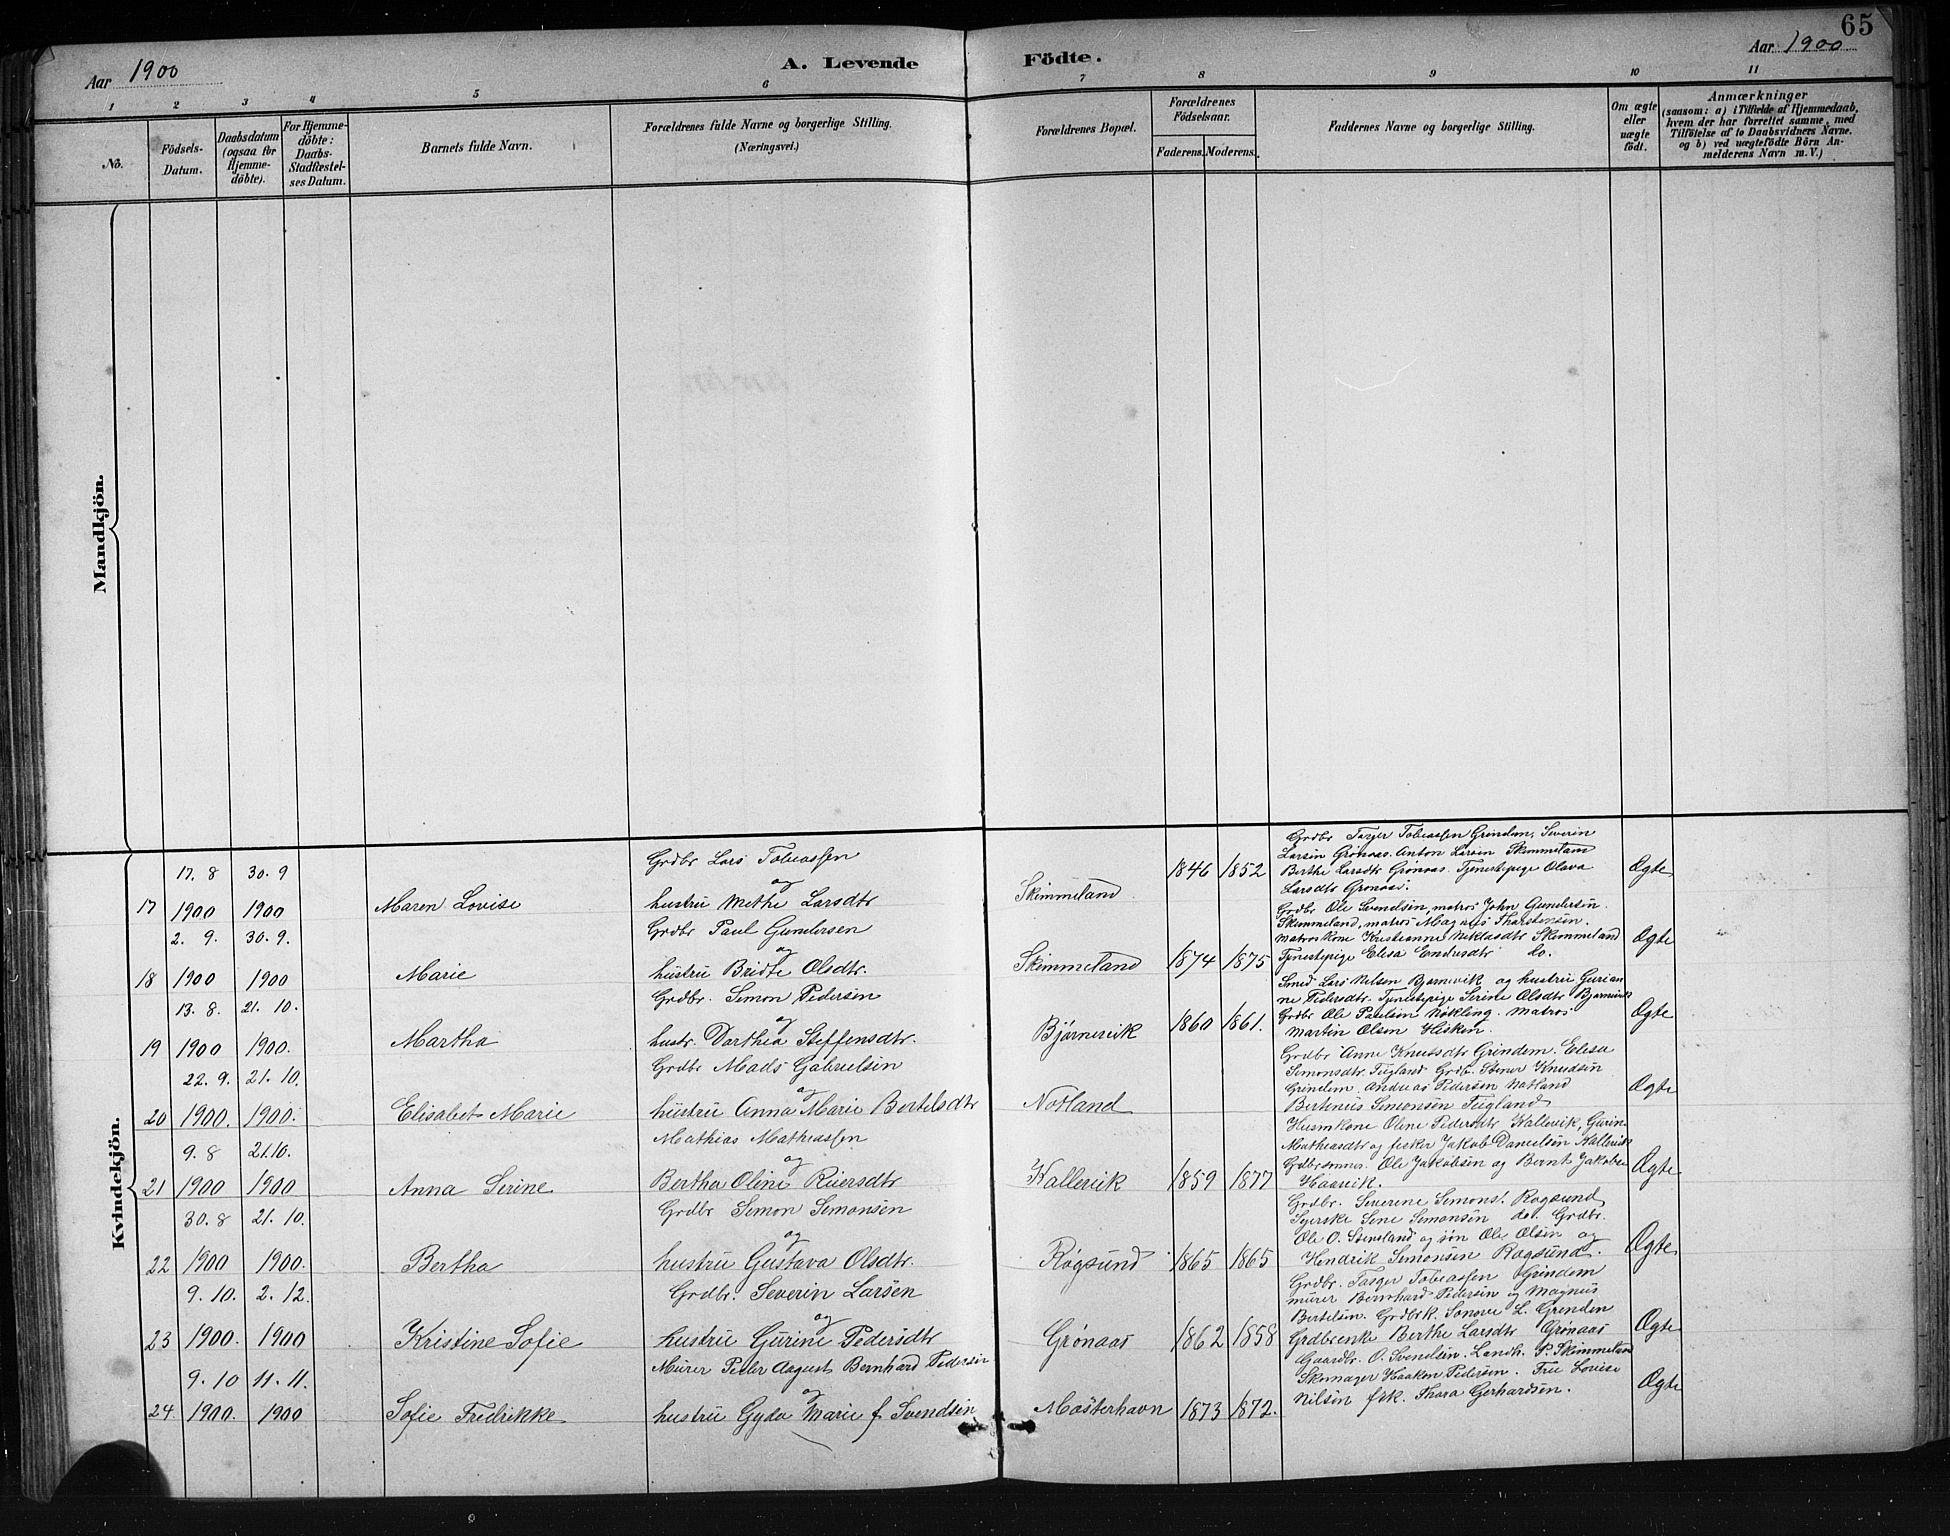 65
Aar 1900
A. Levende
Födte.
Aar 1900
1 2 3 4 5 6 7 8 9 10 11
No.
Födsels-Datum.
Daabsdatum (ogsaa for Hjemme-döbte).
For Hjemme-döbte: Daabs-Stadfæstel-ses Datum.
Barnets fulde Navn.
Forældrenes fulde Navne og borgerlige Stilling.
(Næringsvei.)
Forældrenes Bopæl.
Forældrenes Födselsaar.
Faderens. Moderens.
Faddernes Navne og borgerlige Stilling.
Om ægte eller uægte födt.
Anmærkninger
(saasom: a) i Tilfælde af Hjemmedaab,
hvem der har forrettet samme, med
Tilföielse af to Daabsvidners Navne.
og b) ved uægtefödte Börn An-
melderens Navn m. V.)
Mandkjön.
Kvindekjön.
17 17. 8 1900 30. 9 1900 Maren Lovise
Grdbr Lars Tobiassen
og
hustru Methe Larsdtr
Skimmeland 1846 1852
Grdbr Targer Tobiassen Grindem, Severin
Larsen Grønaas. Anton Larsen Skimmeland
Berthe Larsdtr Grønaas. Tjenestepige Olava
Larsdtr Grønaas.
Ægte
18 2. 9. 1900 30. 9. 1900 Marie
Grdbr Paul Gundersen
og
hustru Bridte Olsdtr.
Skimmeland 1874 1875
Grdbr Ole Svendsen, matros John Gundersen
Skimmeland, matros Magnus Thorstensen.
Matros Kone Kristianne Niklasdtr Skimmeland
Tjenestepige Elisa Endresdtr do.
Ægte
19 13. 8. 1900 21. 10. 1900. Martha
Grdbr. Simon Pedersen
og
hustr. Dorthea Steffensdtr.
Bjørnevik 1860 1861.
Smed Lars Nilsen Bjørnevik og hustru Gurian
ne Pedersdtr. Tjenestepige Serine Olsdtr Bjørnevik
Grdbr Ole Paulsen Nøkling. Matros
Martin Olsen Hisken.
Ægte
20 22. 9. 1900. 21. 10. 1900. Elisabet Marie
Grdbr Mads Gabrielsen
og
hustru Anna Marie Bertelsdtr
Notland
Grdbr Anne Knutsdtr Grindem. Elisa
Simonsdtr Fugland Grdbr. Stener Knudsen
Grindem. Andreas Pedersen Notland
Bertinus Simonsen Fugland
Ægte
21 9. 8 1900 21. 10. 1900 Anna Serine
Mathias Mathiassen
og
Bertha Oline Riersdtr
Wallevik 1859 1877
Husmkone Oline Pedersdtr Wallevik, Gurin
Mathiasdtr og fisker Jakob Danielsen Wallevik
Grdbrsønner Ole Jakobsen og Bernt Jakobsen
Haavik.
Ægte
22 30. 8 1900 21. 10. 1900. Bertha
Grdbr Simon Simonsen
og
hustru Gustava Olsdtr.
Røgsund 1865 1865
Grdbr. Severine Simons. Rogsund
Syerske Sine Simonsen do. Grdbr.
Ole O. Stensland og søn Ole Olsen og
Hendrik Simonsen Rogsund.
Ægte
23 9. 10. 1900. 2. 12. 1900 Kristine Sofie
Grdbr. Severin Larsen
og
hustru Gurine Pedersdtr
Grønaas 1862 1858
Grdbr. Targer Tobiassen Grindem
murer Bernhard Pedersen og Magnus
Bertelsen. Grdbrk. Sonove L. Grinden
Grdbrenke Berthe Larsdtr Grønaas
Ægte
24 9. 10 1900. 11. 11. 1900 Sofie Fredrikke
Murer Peder August Bernhard Pedersen
og
hustru Gyda Marie f Svendsen
Mosterhavn 1873 1872.
Gaardbr. O. Svendsen. Landh. P. Skimmeland
Skomager Haaken Pedersen. Fru Lovise
Nilsen frk. Thora Gerhardsen.
Ægte